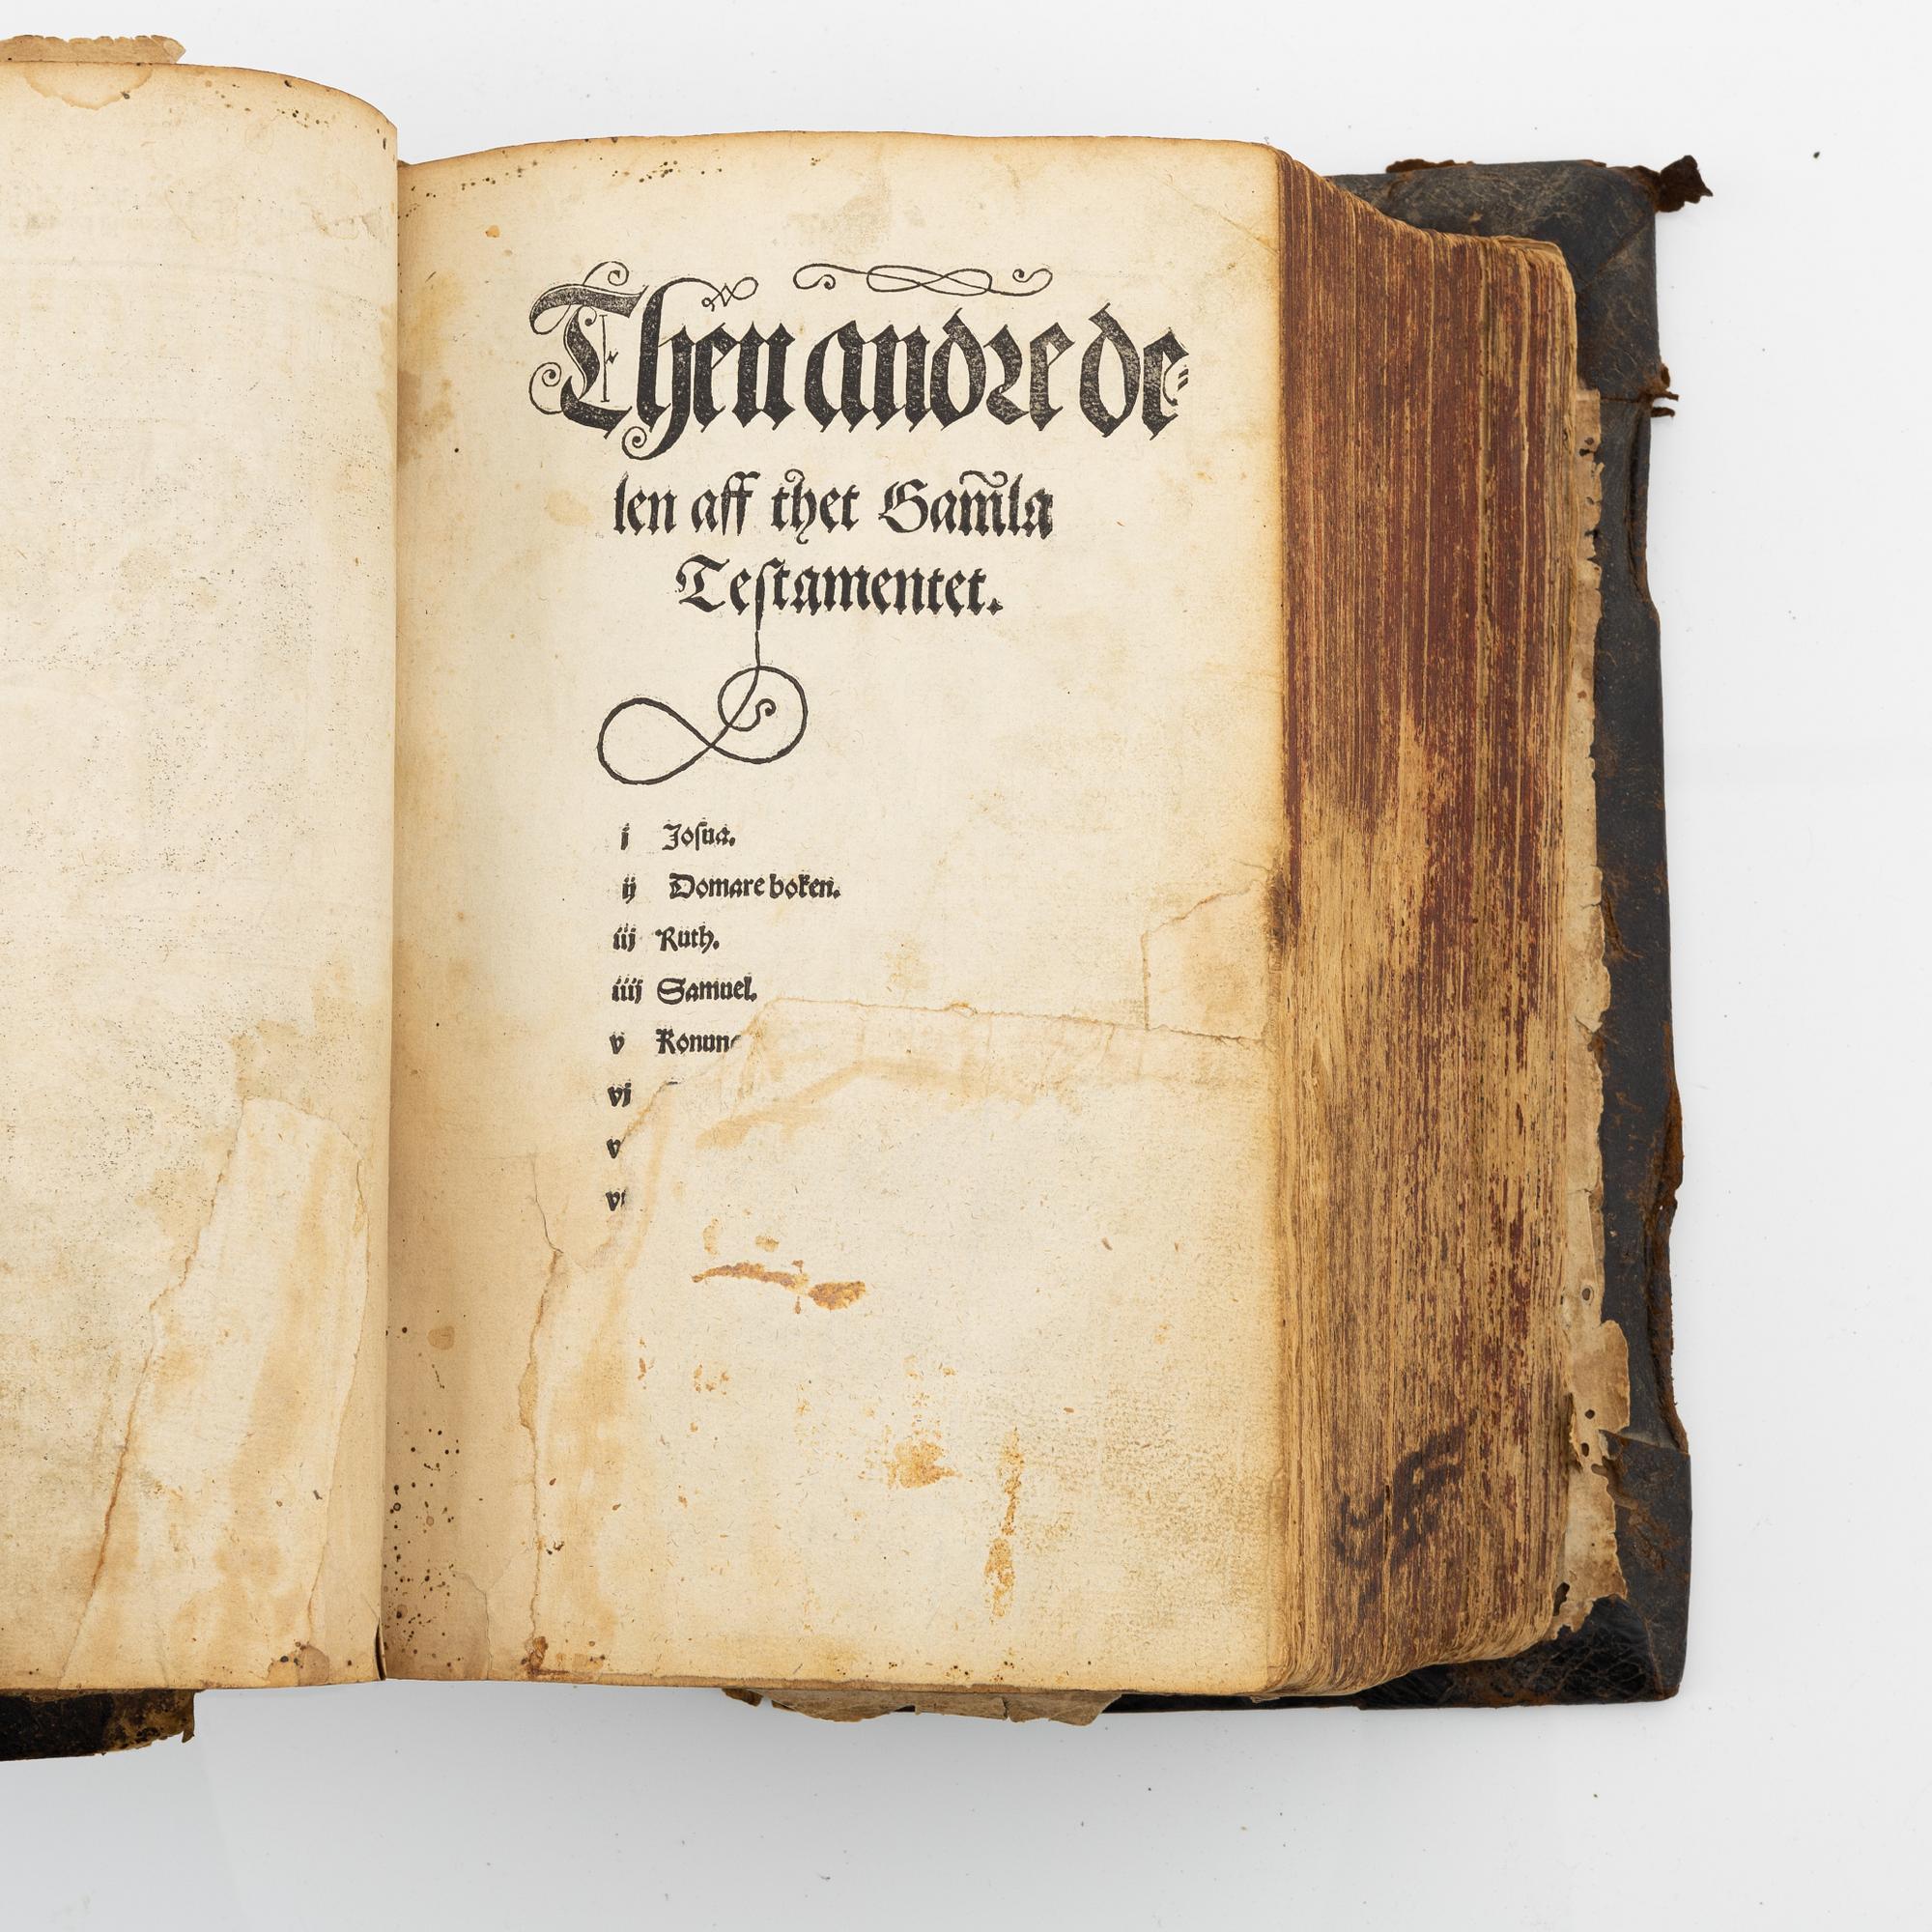 Then andre de⸗
len aff thet Gam̃la
Teſtamentet.
j Joſua.
ij Domare boken.
iij Ruth.
iiij Samuel.
v
vj